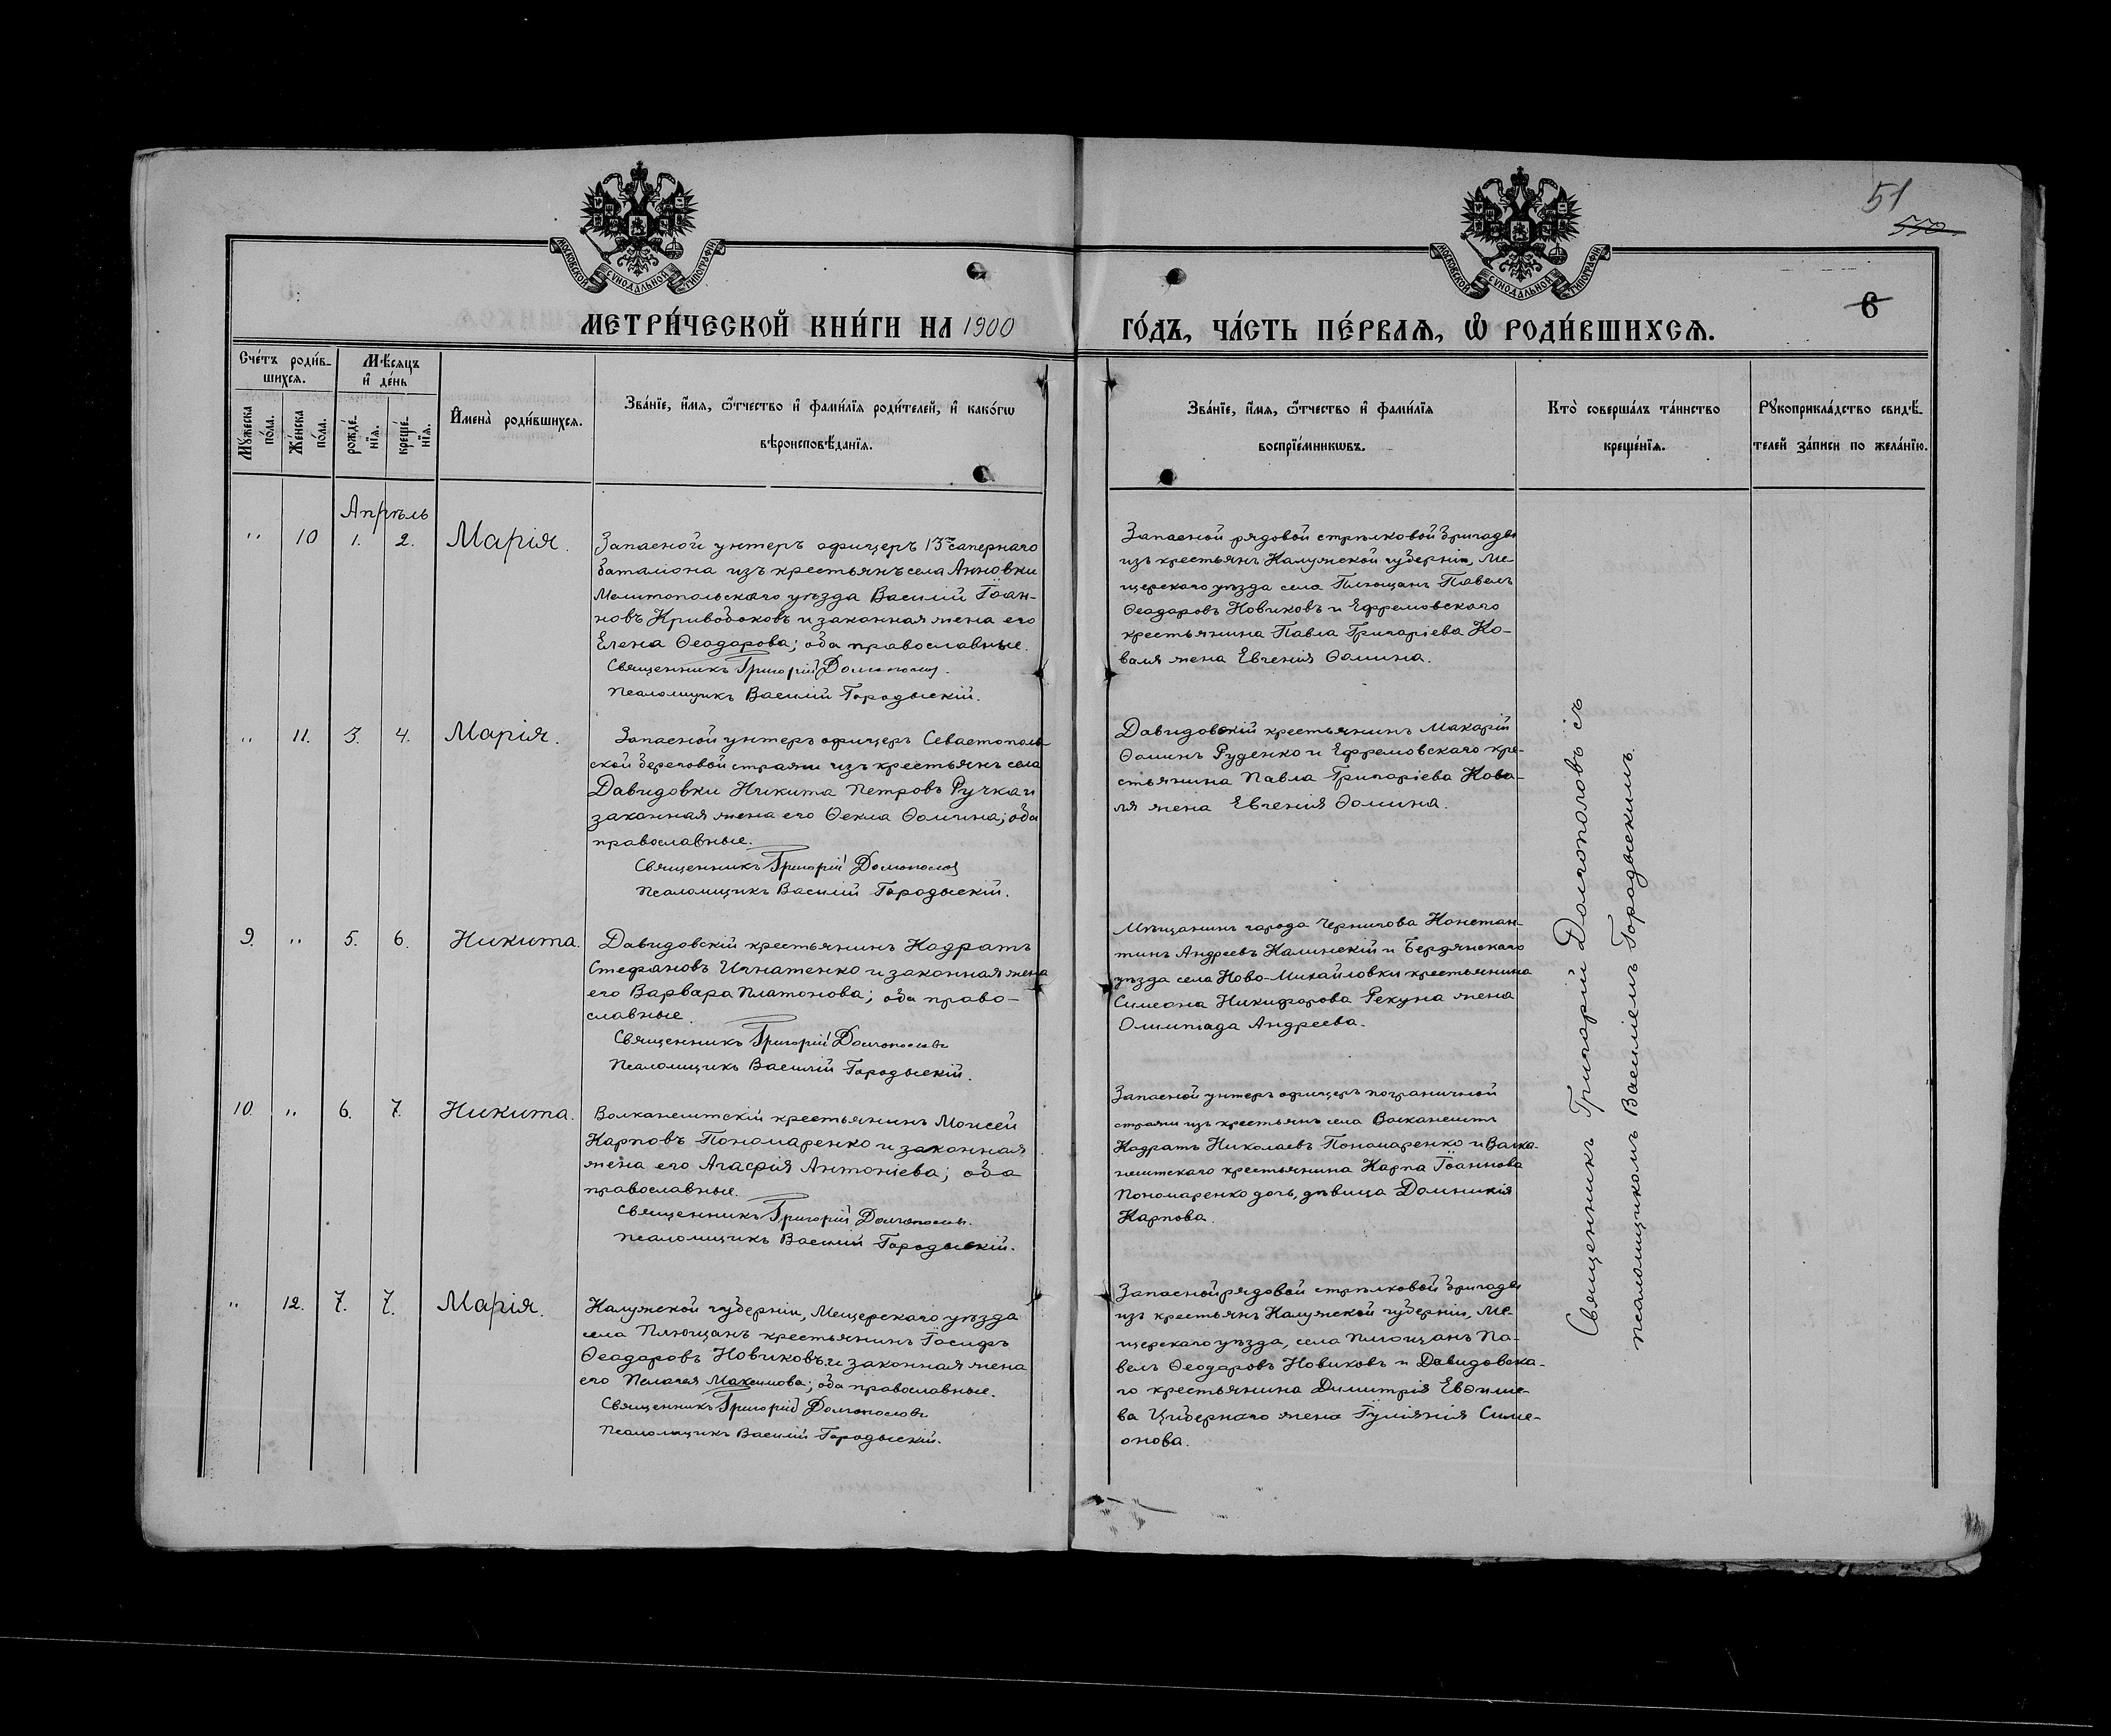 51
550
6
МОСКОВСКОЙ СѴНОДАЛЬНОЙ ТИПОГРАФІИ
МОСКОВСКОЙ СѴНОДАЛЬНОЙ ТИПОГРАФІИ
МЕТРИ́ЧЕСКОЙ КНИ́ГИ НА 1900
ГО́ДЪ, ЧА́СТЬ ПЕ́РВАѦ, Ѽ РОДИ́ВШИХСѦ.
Сче́тъ роди́в-
шихсѧ.
Мѣ́сѧцъ
и҆ де́нь
Мꙋ́жеска
по́ла.
Же́нска
по́ла.
рожде́-
нїѧ.
креще́-
нїѧ.
И҆мена̀ роди́вшихсѧ.
Зва́нїе, и҆́мѧ, ѻ҆́тчество и҆ фами́лїѧ роди́телей, и҆ како́гѡ
вѣроисповѣ́данїѧ.
Зва́нїе, и҆́мѧ, ѻ҆́тчество и҆ фами́лїѧ
воспрїе́мникѡвъ.
Кто̀ соверша́лъ та́инство
креще́нїѧ.
Рꙋкоприкла́дство свидѣ́-
телей за́писи по жела́нїю.
Апрѣль
" 10 1. 2. Марія.
Запасной унтеръ офицеръ 13го сапернаго
баталіона изъ крестьянъ села Анновки
Мелитопольскаго уѣзда Василій Іоан-
новъ Кривобоковъ и законная жена его
Елена Ѳеодорова; оба православные.
Священникъ Григорій Долгополов
Псаломщикъ Василій Городыскій.
Запасной рядовой стрѣлковой бригады
изъ крестьянъ Калужской губерніи, Ме-
щерскаго уѣзда села Плющанъ Павелъ
Ѳеодоровъ Новиковъ и Ефремовскаго
крестьянина Павла Григоріева Ко-
валя жена Евгенія Ѳомина.
" 11. 3. 4. Марія.
Запасной унтеръ офицеръ Севастополь-
ской береговой стражи изъ крестьянъ села
Давидовки Никита Петровъ Ручка и
законная жена его Ѳекла Ѳомина; оба
православные.
Священникъ Григорій Долгополов
Псаломщикъ Василій Городыскій.
Давидовскій крестьянинъ Макарій
Ѳоминъ Руденко и Ефремовскаго кре-
стьянина Павла Григоріева Кова-
ля жена Евгенія Ѳомина.
9. " 5. 6. Никита.
Давидовскій крестьянинъ Кодратъ
Стефановъ Игнатенко и законная жена
его Варвара Платонова; оба право-
славные.
Священникъ Григорій Долгополовъ
Псаломщикъ Василій Городыскій.
Мѣщанинъ города Чернигова Констан-
тинъ Андреевъ Калинскій и Бердянскаго
уѣзда села Ново-Михайловки крестьянина
Симеона Никифорова Рекуна жена
Олимпіада Андреева.
10. " 6. 7. Никита.
Волканештскій крестьянинъ Моисей
Карповъ Пономаренко и законная
жена его Агафія Антоніева; оба
православные.
Священникъ Григорій Долгополовъ.
Псаломщикъ Василій Городыскій.
Запасной унтеръ офицеръ пограничной
стражи изъ крестьянъ села Волканештъ
Кодратъ Николаевъ Пономаренко и Волка-
нештскаго крестьянина Карпа Іоаннова
Пономаренко дочь, дѣвица Домникія
Карпова.
" 12. 7. 7. Марія.
Калужской губерніи, Мещерскаго уѣзда
села Плющанъ крестьянинъ Іосифъ
Ѳеодоровъ Новиковъ и законная жена
его Пелагея Максимова; оба православные.
Священникъ Григорій Долгополовъ
Псаломщикъ Василій Городыскій.
Запасной рядовой стрѣлковой бригады
изъ крестьянъ Калужской губерніи, Ме-
щерскаго уѣзда, села Плющанъ Па-
велъ Ѳеодоровъ Новиковъ и Давидовска-
го крестьянина Димитрія Евѳиміе-
ва Цыбернаго жена Іуліянія Симе-
онова.
Священникъ Григорій Долгополовъ съ
псаломщикомъ Василіемъ Городыскимъ.